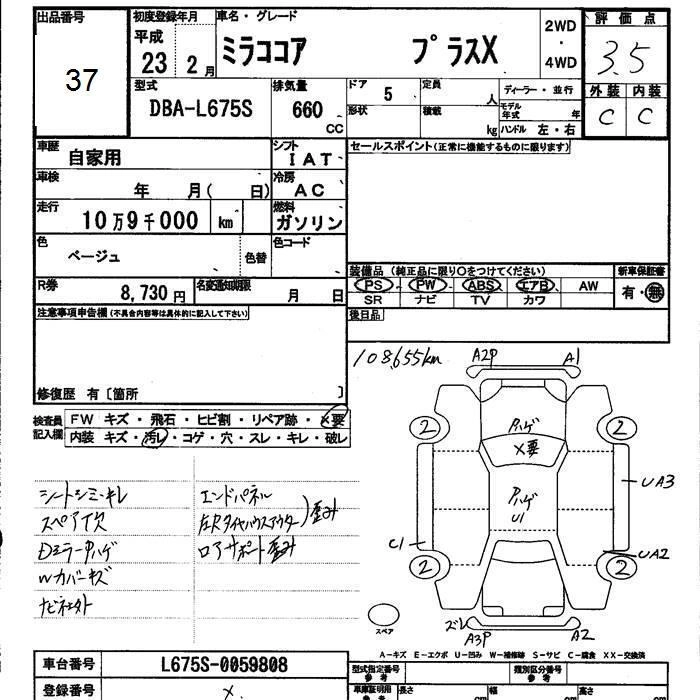 出品番号
37
初度登録年月
平成
23 2月
車名・グレード
ミラココア プラスX
2WD
・
4WD
評価点
3.5
外装 内装
C C
型式
DBA-L675S
排気量
660
CC
ドア 5
形状
定員 人
積載 kg
ディーラー・並行
モデル年式 年
ハンドル 左・右
車歴
自家用
シフト
IAT
セールスポイント(正常に機能するものに限ります)
車検
年 月( 日)
冷房
AC
走行
10万9千000 km
燃料
ガソリン
色
ベージュ
色替
色コード
装備品 (純正品に限り○をつけてください)
新車保証書
PS PW ABS エアB AW
SR ナビ TV カワ
有・無
R券
8,730円
名変通知期限
月 日
後日品
注意事項申告欄(不具合内容等は具体的に記入して下さい)
修復歴 有〔箇所 〕
108,655km
検査員記入欄
FW キズ・飛石・ヒビ割・リペア跡・×要
内装 キズ・汚レ・コゲ・穴・スレ・キレ・破レ
A2P A1
ハゲ
X要
ハゲ
U1
2 2
2 2
UA3
UA2
C1
ズレ
A3P A2
スペア
シートシミ・キレ
スペア欠
Dミラーハゲ
Wカバーキズ
エンドパネル
左Rタイヤハウスアウター)歪み
ロアサポート歪み
A-キズ E-エクボ U-凹み W-補修跡 S-サビ C-腐食 XX-交換済
車台番号
L675S-0059808
登録番号
×
型式指定番号
参考
類別区分番号
参考
車庫証明用
参考
長さ cm
幅 cm
高さ cm